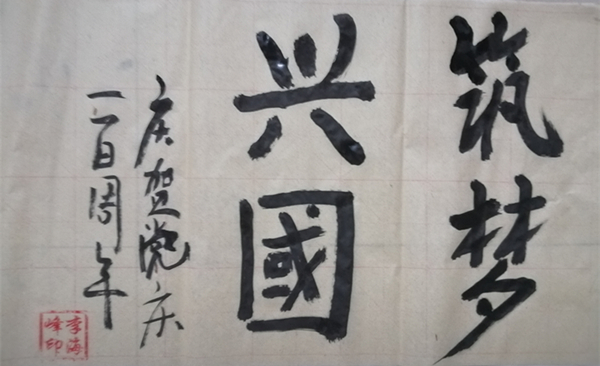 筑梦
兴國
庆贺党庆
一百周年
李海
峰印